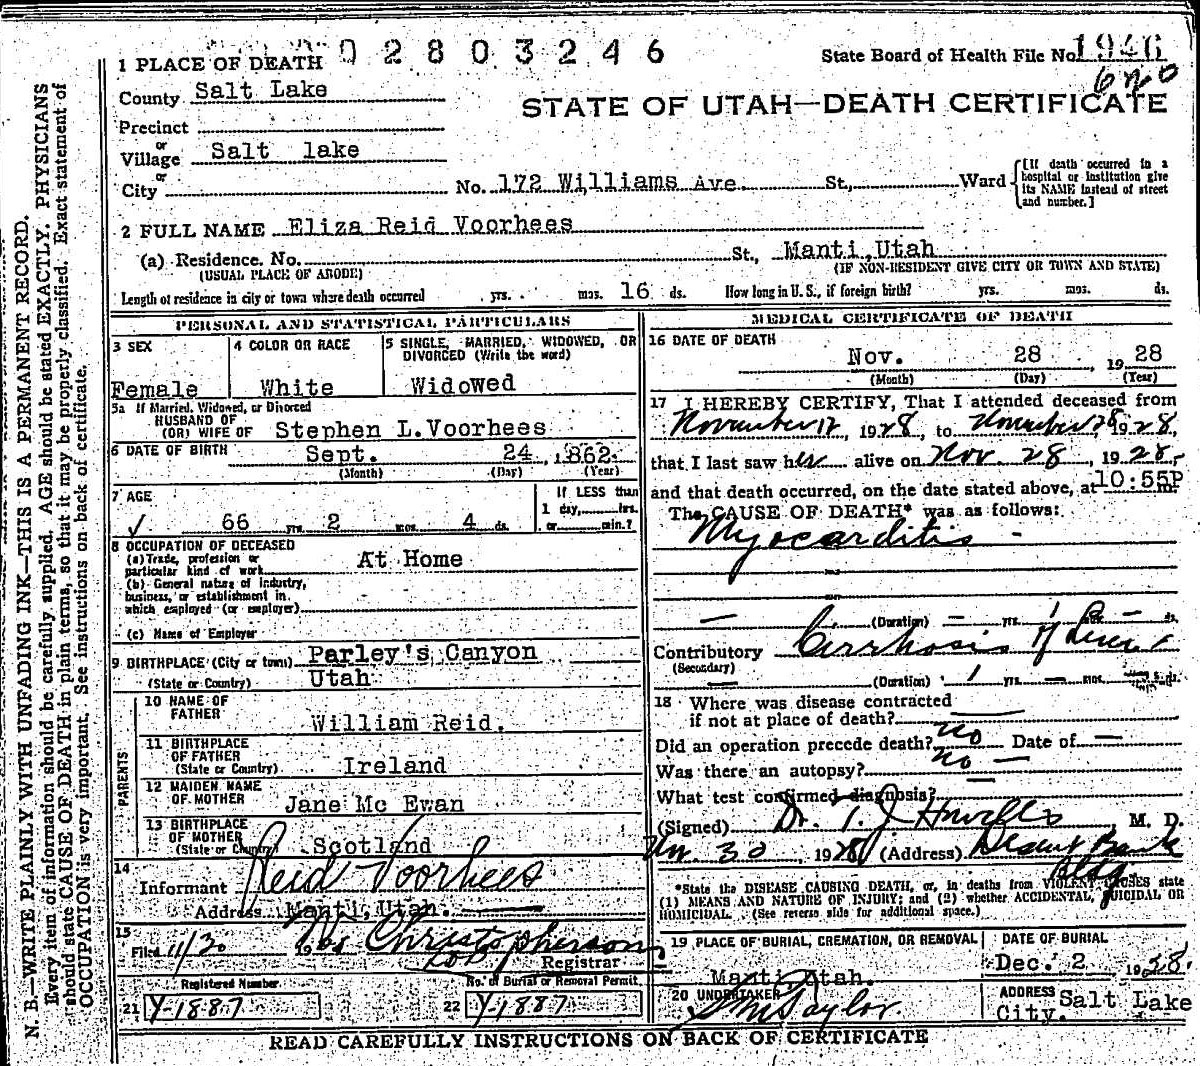 02803246
State Board of Health File No. 1946
STATE OF UTAH—DEATH CERTIFICATE
1 PLACE OF DEATH
County Salt Lake
Precinct
or
Village Salt lake
or
City No. 172 Williams Ave. St., Ward [If death occurred in a hospital or institution give its NAME instead of street and number.]
2 FULL NAME Eliza Reid Voorhees
(a) Residence. No. St., Manti, Utah
(USUAL PLACE OF ABODE) (IF NON-RESIDENT GIVE CITY OR TOWN AND STATE)
Length of residence in city or town where death occurred yrs. mos. 16 ds. How long in U. S., if foreign birth? yrs. mos. ds.
PERSONAL AND STATISTICAL PARTICULARS
3 SEX
Female
4 COLOR OR RACE
White
5 SINGLE, MARRIED, WIDOWED, OR
DIVORCED (Write the word)
Widowed
5a If Married, Widowed, or Divorced
HUSBAND OF
(OR) WIFE OF Stephen L. Voorhees
6 DATE OF BIRTH Sept. 24, 1862.
(Month) (Day) (Year)
7 AGE
66 yrs. 2 mos. 4 ds.
If LESS than
1 day, hrs.
or min.?
8 OCCUPATION OF DECEASED
(a) Trade, profession or
particular kind of work At Home
(b) General nature of industry,
business, or establishment in
which employed (or employer)
(c) Name of Employer
9 BIRTHPLACE (City or town) Parley's Canyon
(State or Country) Utah
PARENTS
10 NAME OF
FATHER William Reid.
11 BIRTHPLACE
OF FATHER
(State or Country) Ireland
12 MAIDEN NAME
OF MOTHER Jane Mc Ewan
13 BIRTHPLACE
OF MOTHER
(State or Country) Scotland
14
Informant Reid Voorhees
Address Manti, Utah.
15
Filed 11/30 Christopherson
Registrar
Registered Number No. of Burial or Removal Permit
21 Y-1887 22 Y-1887
MEDICAL CERTIFICATE OF DEATH
16 DATE OF DEATH
Nov. 28, 1928
(Month) (Day) (Year)
17 I HEREBY CERTIFY, That I attended deceased from
November 12, 1928, to November 28, 1928,
that I last saw her alive on Nov. 28, 1928,
and that death occurred, on the date stated above, at 10:55P m.
The CAUSE OF DEATH* was as follows:
Myocarditis -
(Duration) yrs. ds.
Contributory Cirrhosis of Liver
(Secondary)
(Duration) 1 yrs. mos. ds.
18 Where was disease contracted
if not at place of death?
Did an operation precede death? no Date of —
Was there an autopsy? no —
What test confirmed diagnosis? —
(Signed) Dr. T. J. Howells, M. D.
Nov. 30, 1928 (Address) Deseret Bank
Bldg
*State the DISEASE CAUSING DEATH, or, in deaths from VIOLENT CAUSES state
(1) MEANS AND NATURE OF INJURY; and (2) whether ACCIDENTAL, SUICIDAL OR
HOMICIDAL. (See reverse side for additional space.)
19 PLACE OF BURIAL, CREMATION, OR REMOVAL
Manti, Utah.
DATE OF BURIAL
Dec. 2 1928.
20 UNDERTAKER
Taylor.
ADDRESS Salt Lake
City.
READ CAREFULLY INSTRUCTIONS ON BACK OF CERTIFICATE
N. B.—WRITE PLAINLY WITH UNFADING INK—THIS IS A PERMANENT RECORD.
Every item of information should be carefully supplied. AGE should be stated EXACTLY. PHYSICIANS
should state CAUSE OF DEATH in plain terms, so that it may be properly classified. Exact statement of
OCCUPATION is very important. See instructions on back of certificate.